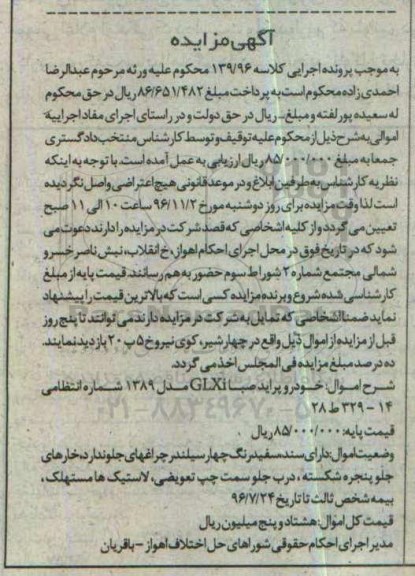 آگهی مزایده
به موجب پرونده اجرایی کلاسه ۱۳۹/۹۶ محکوم علیه ورثه مرحوم عبدالرضا
احمدی زاده محکوم است به پرداخت مبلغ ۸۶/۶۵۱/۴۸۲ ریال در حق محکوم
له سعیده پور لفته و مبلغ ـ ریال در حق دولت و در راستای اجرای مفاد اجراییه
اموالی به شرح ذیل از محکوم علیه توقیف و توسط کارشناس منتخب دادگستری
جمعا به مبلغ ۸۵/۰۰۰/۰۰۰ ریال ارزیابی به عمل آمده است. با توجه به اینکه
نظریه کارشناس به طرفین ابلاغ و در موعد قانونی هیچ اعتراضی واصل نگردیده
است لذا وقت مزایده برای روز دوشنبه مورخ ۹۶/۱۱/۲ ساعت ۱۰ الی ۱۱ صبح
تعیین می گردد و از کلیه اشخاصی که قصد شرکت در مزایده را دارند دعوت می
شود که در تاریخ فوق در محل اجرای احکام اهواز، خ انقلاب، نبش ناصر خسرو
شمالی مجتمع شماره ۲ شورا ط سوم حضور به هم رسانند. قیمت پایه از مبلغ
کارشناسی شده شروع و برنده مزایده کسی است که بالاترین قیمت را پیشنهاد
نماید ضمنا اشخاصی که تمایل به شرکت در مزایده دارند می توانند تا پنج روز
قبل از مزایده از اموال ذیل واقع در چهارشیر، کوی نیرو خ ۵ پ ۲۰ بازدید نمایند.
ده درصد مبلغ مزایده فی المجلس اخذ می گردد.
شرح اموال: خودرو پراید صبا GLXi مدل ۱۳۸۹ شماره انتظامی
۱۴ - ۳۲۹ ط ۲۸
قیمت پایه: ۸۵/۰۰۰/۰۰۰ ریال
وضعیت اموال: دارای سند سفید رنگ چهار سیلندر چراغهای جلو ندارد، خارهای
جلو پنجره شکسته، درب جلو سمت چپ تعویضی، لاستیک ها مستهلک،
بیمه شخص ثالث تا تاریخ ۹۶/۷/۲۴
قیمت کل اموال: هشتاد و پنج میلیون ریال
مدیر اجرای احکام حقوقی شوراهای حل اختلاف اهواز - باقریان